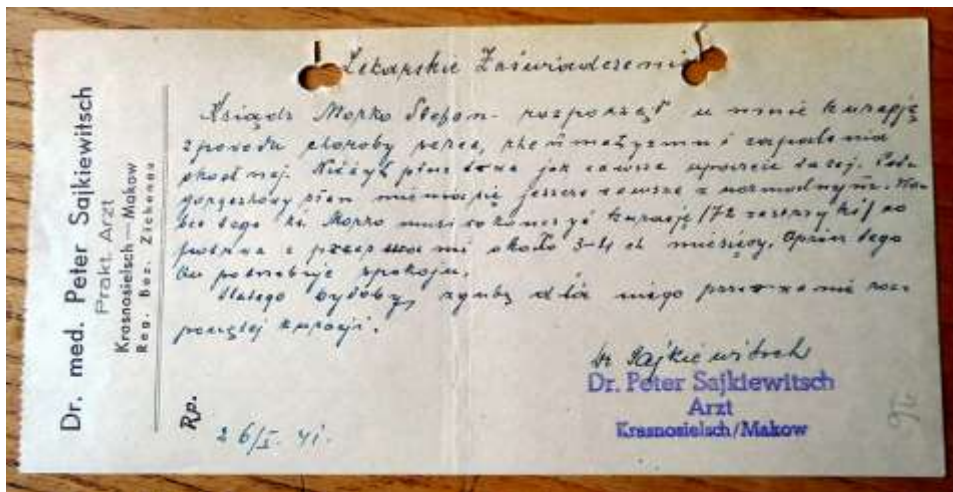 Dr. med. Peter Sajkiewitsch
Prakt. Arzt
Krasnosielsch—Makow
Reg. Bez. Zichenau
Lekarskie Zaświadczenie
Ksiądz Morko Stefan - rozpoczął u mnie kurację
z powodu choroby serca, rheumatyzmu i zapalenia
jak zawsze
gorączkowy stan jeszcze zawsze z normalnym.
tego ks. Morko musi zakończyć kurację /72 zastrzyków/ co
potrwa z przerwami około 3-4 ch miesięcy. Oprócz tego
on potrzebuje spokoju.
Dlatego byłoby zgubą dla niego przerwanie roz-
poczętej kuracji.
Dr Sajkiewitsch
Dr. Peter Sajkiewitsch
Arzt
Krasnosielsch/Makow
Rp.
26/I. 41.